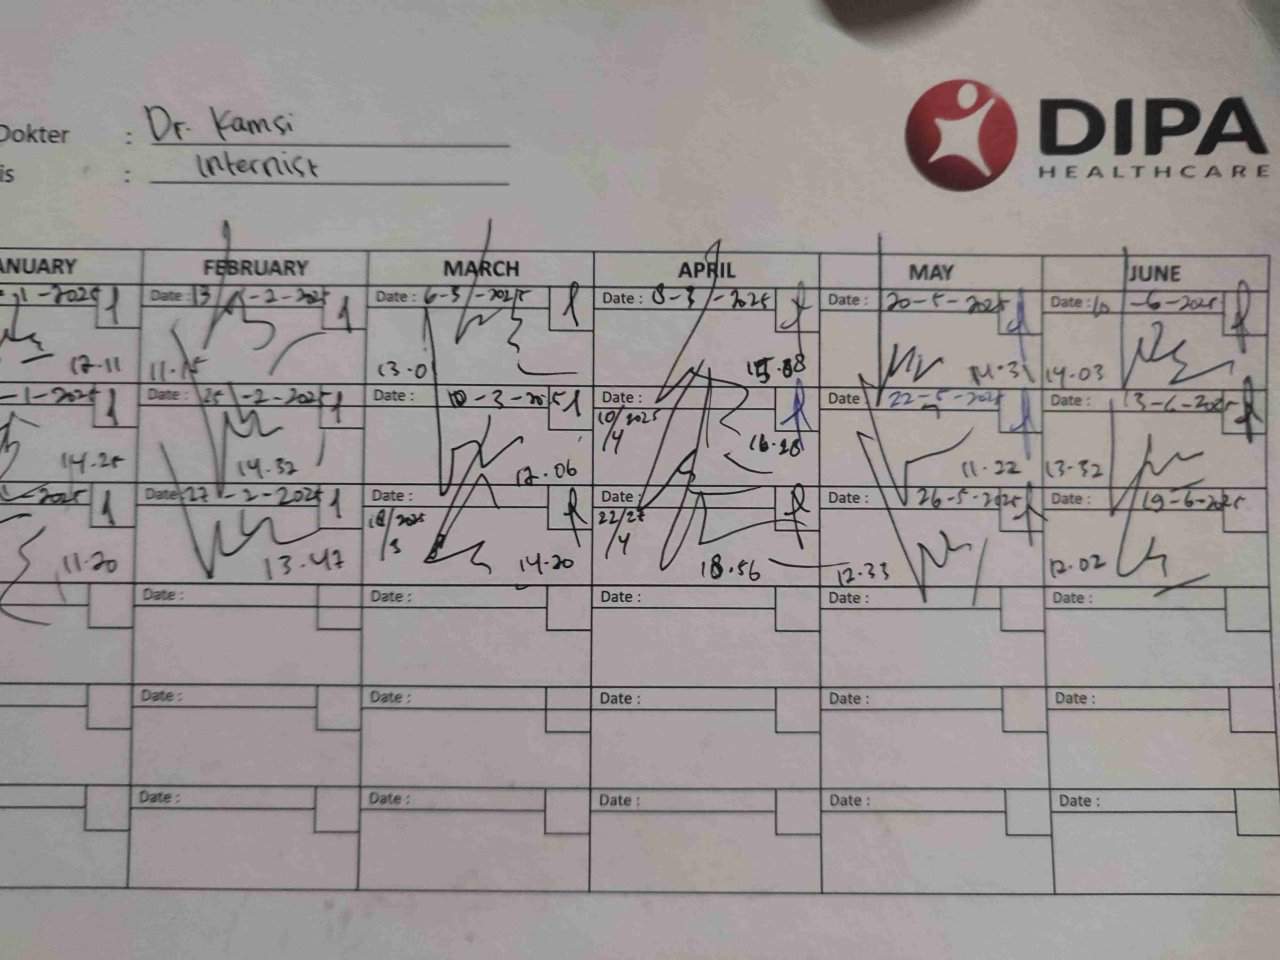 Dokter : Dr. Kamsi
is : Internist
DIPA
HEALTHCARE
ANUARY FEBRUARY MARCH APRIL MAY JUNE
-1-2025 Date : 13 -2-2025 Date : 6-3-2025 Date : 8-3-2025 Date : 20-5-2025 Date : 10 -6-2025
12.11 11.15 13.0 15.08 14.03
-1-2025 Date : 25 -2-2025 Date : 10-3-2025 Date : 10/2025 Date 22-5-2025 Date : 13-6-2025
/4
14.25 14.32 12.06 16.28 11.22 13-32
2025 Date : 27 -2-2025 Date : Date : Date : 26-5-2025 Date : 19-6-2025
18/2025 22/25
/3 /4
11.20 13.47 14.20 18.56 12.33 12.02
Date : Date : Date : Date : Date :
Date : Date : Date : Date : Date :
Date : Date : Date : Date : Date :